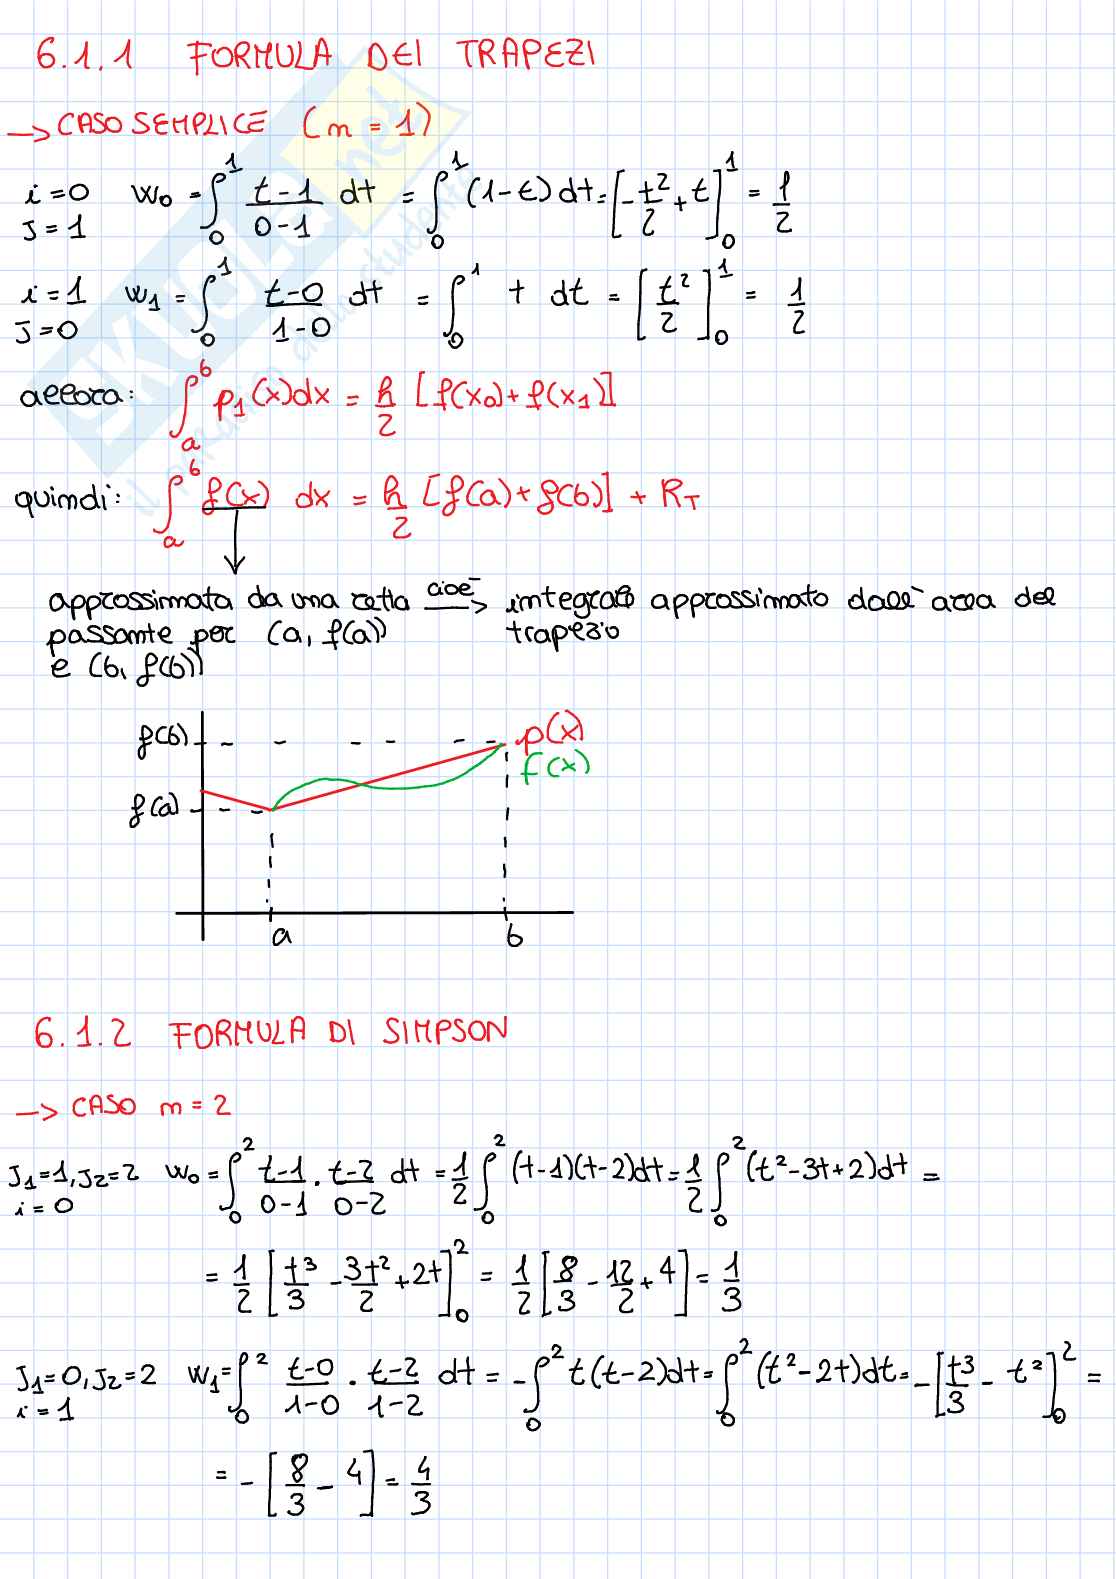 6.1.1 FORMULA DEI TRAPEZI
→ CASO SEMPLICE (n = 1)
i=0 J=1 W₀ = ∫₀¹ (t-1)/(0-1) dt = ∫₀¹ (1-t) dt = [-t²/2 + t]₀¹ = 1/2
i=1 J=0 W₁ = ∫₀¹ (t-0)/(1-0) dt = ∫₀¹ t dt = [t²/2]₀¹ = 1/2
allora: ∫ₐᵇ p₁(x)dx = h/2 [f(x₀)+f(x₁)]
quindi: ∫ₐᵇ f(x) dx = h/2 [f(a)+f(b)] + R_T
approssimata da una retta cioè → integrale approssimato dall'area del
passante per (a, f(a)) trapezio
e (b, f(b))
f(b) p(x)
f(x)
f(a)
a b
6.1.2 FORMULA DI SIMPSON
→ CASO n = 2
J₁=1, J₂=2 i=0 W₀ = ∫₀² (t-1)/(0-1) · (t-2)/(0-2) dt = 1/2 ∫₀² (t-1)(t-2)dt = 1/2 ∫₀² (t²-3t+2)dt =
= 1/2 [t³/3 - 3t²/2 + 2t]₀² = 1/2 [8/3 - 12/2 + 4] = 1/3
J₁=0, J₂=2 i=1 W₁ = ∫₀² (t-0)/(1-0) · (t-2)/(1-2) dt = -∫₀² t(t-2)dt = ∫₀² (t²-2t)dt = -[t³/3 - t²]₀² =
= -[8/3 - 4] = 4/3
SKUOLA.net
il paradiso dello studente